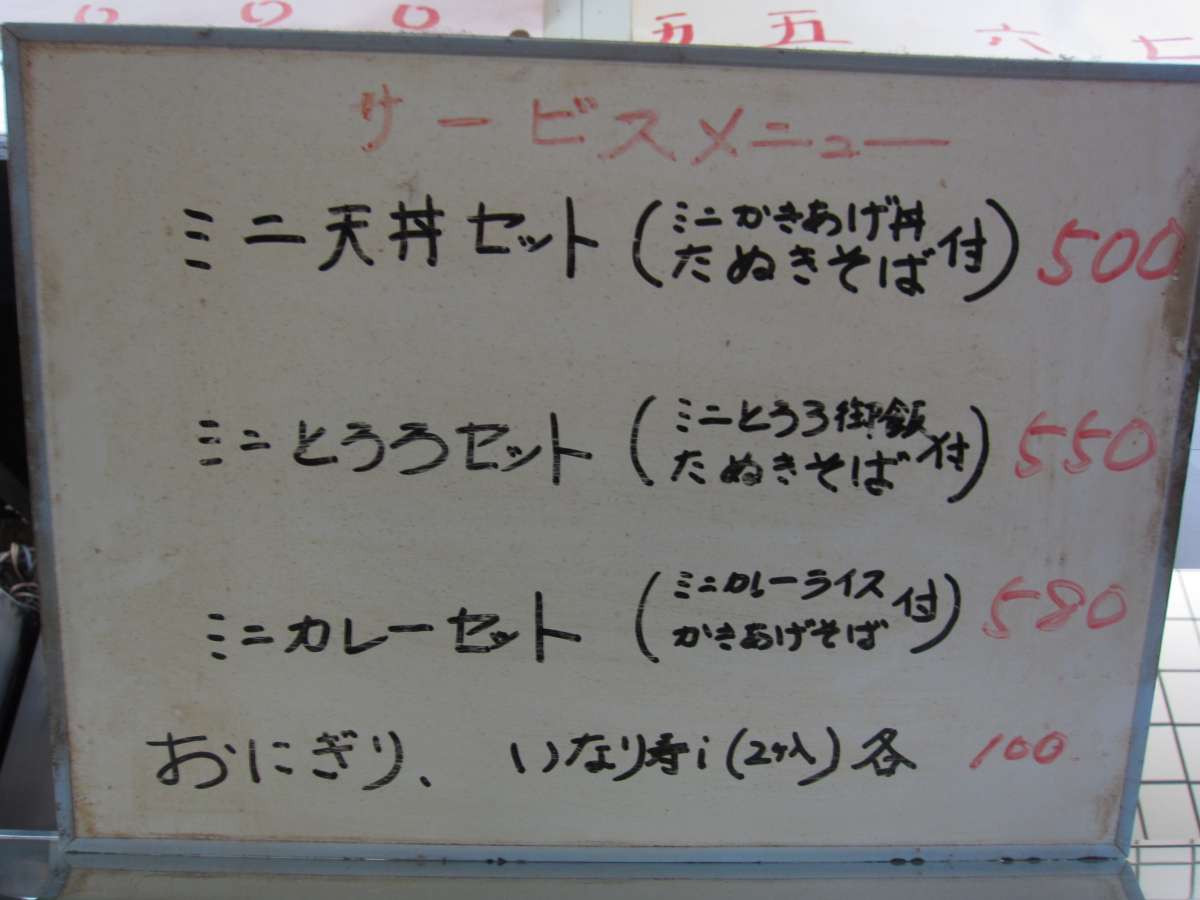 〇 〇 〇 五 五 六 七
サービスメニュー
ミニ天丼セット (ミニかきあげ丼 たぬきそば 付) 500
ミニとろろセット (ミニとろろ御飯 たぬきそば 付) 550
ミニカレーセット (ミニカレーライス かきあげそば 付) 580
おにぎり、 いなり寿i (2ヶ入) 各 100